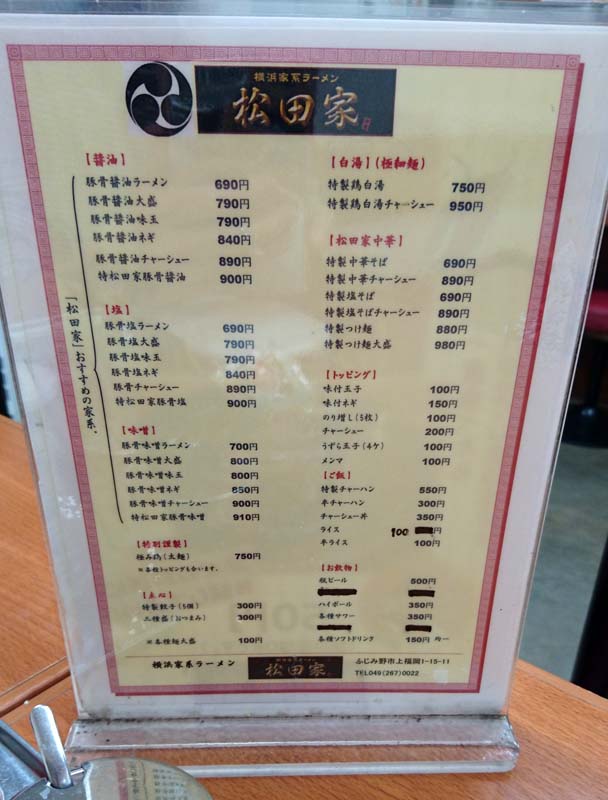 横浜家系ラーメン
松田家
【醤油】
豚骨醤油ラーメン 690円
豚骨醤油大盛 790円
豚骨醤油味玉 790円
豚骨醤油ネギ 840円
豚骨醤油チャーシュー 890円
特松田家豚骨醤油 900円
【塩】
豚骨塩ラーメン 690円
豚骨塩大盛 790円
豚骨塩味玉 790円
豚骨塩ネギ 840円
豚骨チャーシュー 890円
特松田家豚骨塩 900円
【味噌】
豚骨味噌ラーメン 700円
豚骨味噌大盛 800円
豚骨味噌味玉 800円
豚骨味噌ネギ 850円
豚骨味噌チャーシュー 900円
特松田家豚骨味噌 910円
「松田家」おすすめの家系。
【特別謹製】
極み鶏(太麺) 750円
※各種トッピングも合います。
【点心】
特製餃子(5個) 300円
三種盛(おつまみ) 300円
※各種麺大盛 100円
【白湯】(極細麺)
特製鶏白湯 750円
特製鶏白湯チャーシュー 950円
【松田家中華】
特製中華そば 690円
特製中華チャーシュー 890円
特製塩そば 690円
特製塩そばチャーシュー 890円
特製つけ麺 880円
特製つけ麺大盛 980円
【トッピング】
味付玉子 100円
味付ネギ 150円
のり増し(5枚) 100円
チャーシュー 200円
うずら玉子(4ケ) 100円
メンマ 100円
【ご飯】
特製チャーハン 550円
半チャーハン 300円
チャーシュー丼 350円
ライス 100 円
半ライス 100円
【お飲物】
瓶ビール 500円
ハイボール 350円
各種サワー 350円
各種ソフトドリンク 150円 均一
横浜家系ラーメン
松田家
ふじみ野市上福岡1-15-11
TEL049(267)0022